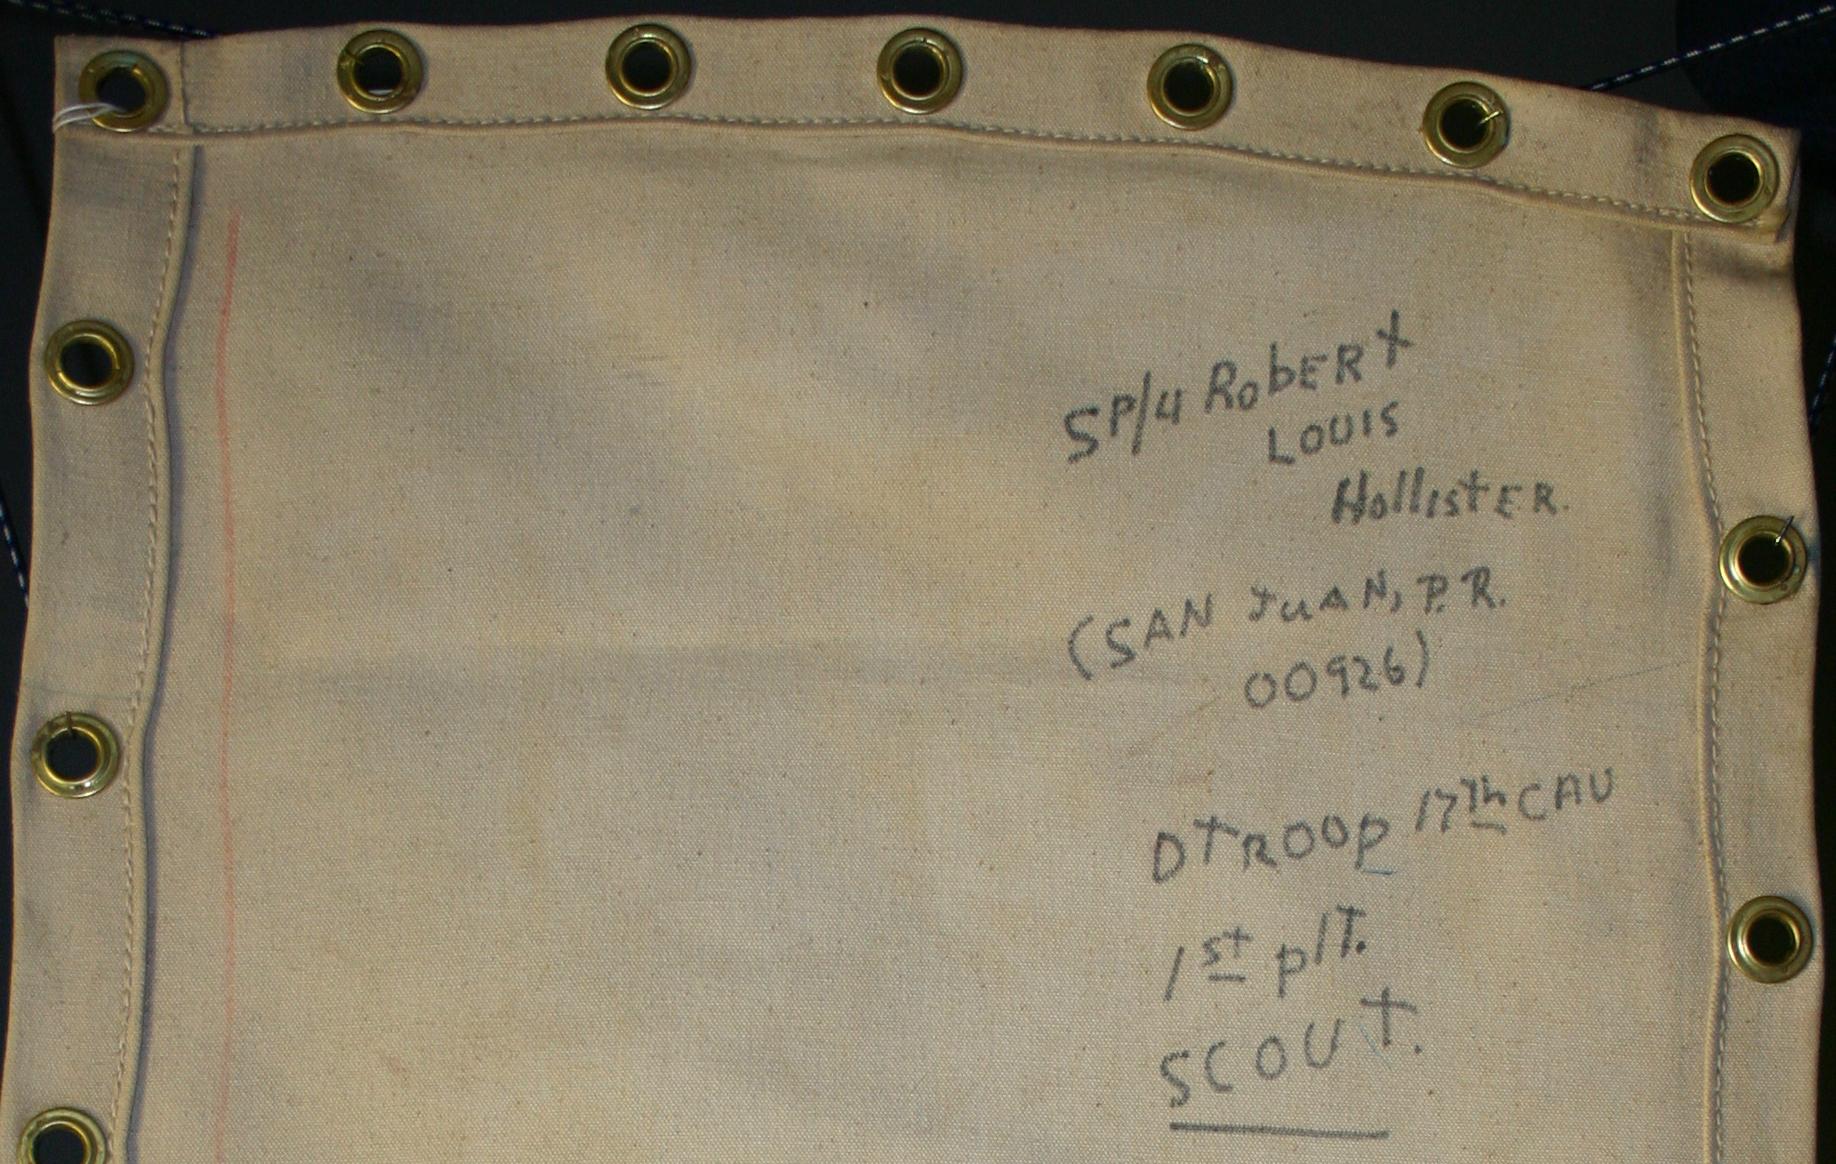 SP/4 RobERt
LOUIS
HollistER.
(SAN JuAN, P.R.
00926)
D tROOp 17th CAV
1st plT.
SCOUt.